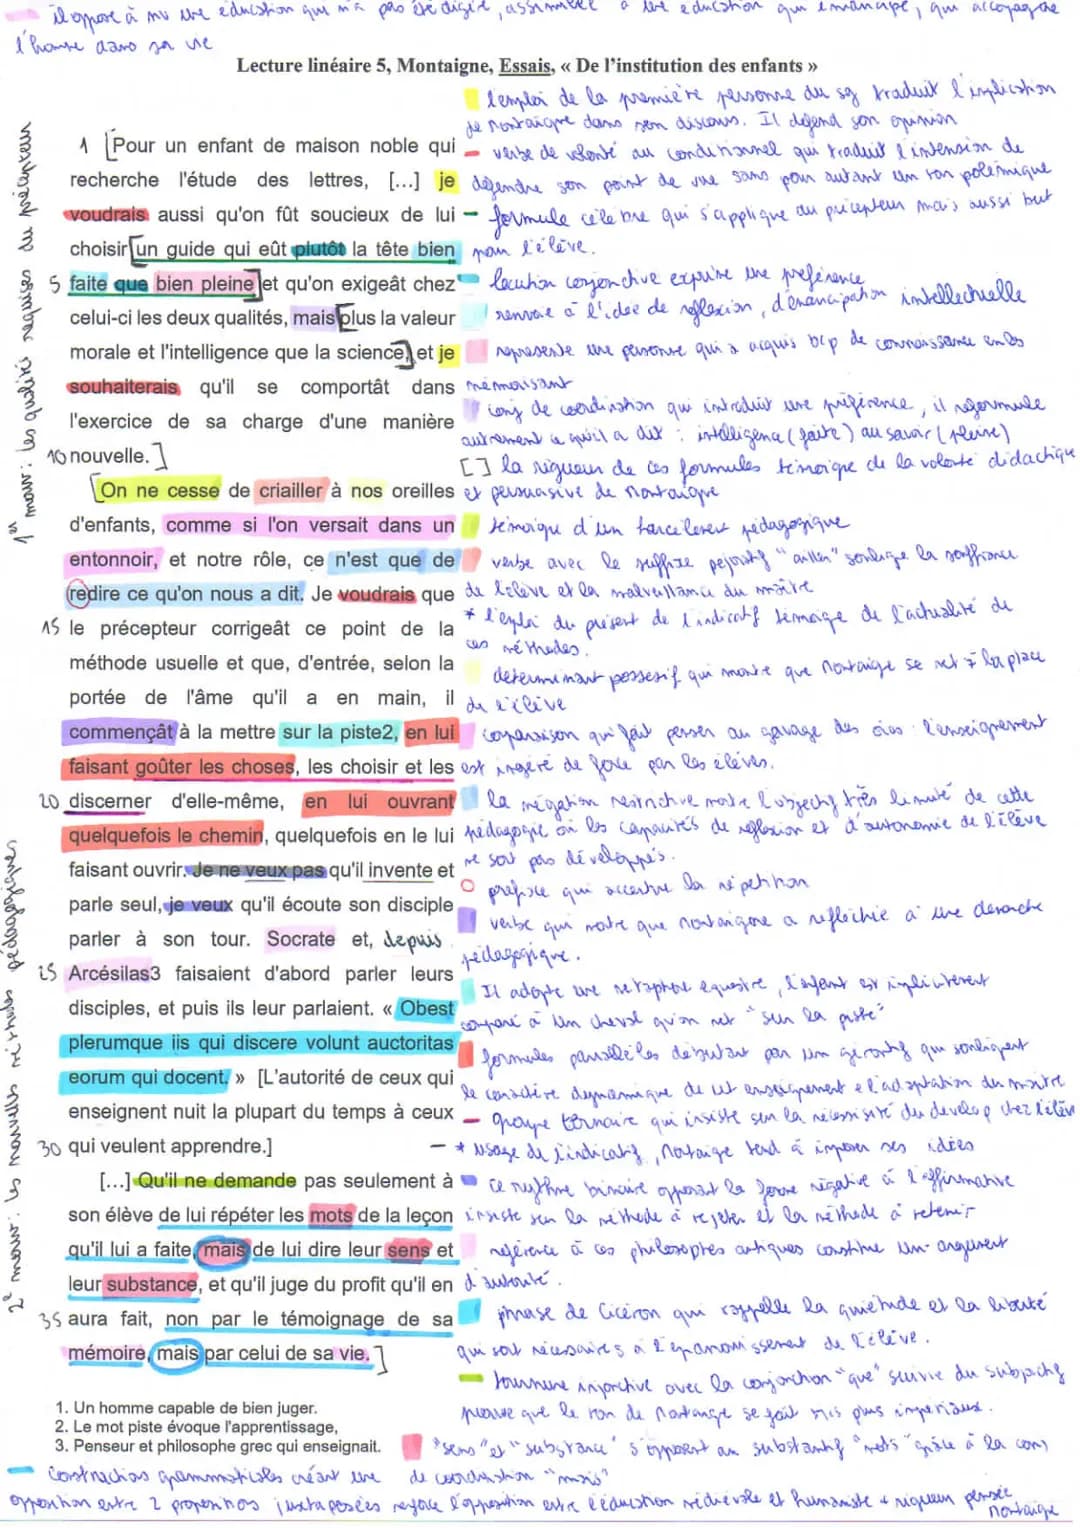 il oppose à mv une éducation qui n'a pas été digéré, assimilée à une éducation qui émancipe, qui accompagne
l'homme dans sa vie
Lecture linéaire 5, Montaigne, Essais, « De l'institution des enfants »
1er mouv : les qualités requises du précepteur
1 [Pour un enfant de maison noble qui
recherche l'étude des lettres, [...] je
voudrais aussi qu'on fût soucieux de lui
choisir [un guide qui eût plutôt la tête bien
5 faite que bien pleine] et qu'on exigeât chez
celui-ci les deux qualités, mais [plus la valeur
morale et l'intelligence que la science,] et je
souhaiterais qu'il se comportât dans
l'exercice de sa charge d'une manière
10 nouvelle.]
2e mouv : les nouvelles méthodes pédagogiques
[On ne cesse de criailler à nos oreilles
d'enfants, comme si l'on versait dans un
entonnoir, et notre rôle, ce n'est que de
redire ce qu'on nous a dit. Je voudrais que
15 le précepteur corrigeât ce point de la
méthode usuelle et que, d'entrée, selon la
portée de l'âme qu'il a en main, il
commençât à la mettre sur la piste2, en lui
faisant goûter les choses, les choisir et les
20 discerner d'elle-même, en lui ouvrant
quelquefois le chemin, quelquefois en le lui
faisant ouvrir. Je ne veux pas qu'il invente et
parle seul, je veux qu'il écoute son disciple
parler à son tour. Socrate et, depuis
25 Arcésilas3 faisaient d'abord parler leurs
disciples, et puis ils leur parlaient. « Obest
plerumque iis qui discere volunt auctoritas
eorum qui docent. » [L'autorité de ceux qui
enseignent nuit la plupart du temps à ceux
30 qui veulent apprendre.]
[...] Qu'il ne demande pas seulement à
son élève de lui répéter les mots de la leçon
qu'il lui a faite, mais de lui dire leur sens et
leur substance, et qu'il juge du profit qu'il en
35 aura fait, non par le témoignage de sa
mémoire, mais par celui de sa vie.]
1. Un homme capable de bien juger.
2. Le mot piste évoque l'apprentissage,
3. Penseur et philosophe grec qui enseignait.
l'emploi de la première personne du sg traduit l'implication
de Montaigne dans son discours. Il défend son opinion
- verbe de volonté au conditionnel qui traduit l'intension de
défendre son point de vue sans pour autant un ton polémique
- formule célèbre qui s'applique au précepteur mais aussi but
pour l'élève.
locution conjonctive exprime une préférence
renvoie à l'idée de réflexion, d'émancipation intellectuelle
représente une personne qui a acquis bcp de connaissance en les
mémorisant
conj de coordination qui introduit une préférence, il reformule
autrement ce qu'il a dit : intelligence (faite) au savoir (pleine)
[ ] la rigueur de ces formules témoigne de la volonté didactique
et persuasive de Montaigne
témoigne d'un harcèlement pédagogique
verbe avec le suffixe péjoratif "ailler" souligne la souffrance
de l'élève et la malveillance du maître
* l'emploi du présent de l'indicatif témoigne de l'actualité de
ces méthodes.
déterminant possessif qui montre que Montaigne se met à la place
de l'élève
comparaison qui fait penser au gavage des oies : l'enseignement
est ingéré de force par les élèves.
la négation restrictive montre l'objectif très limité de cette
pédagogie où les capacités de réflexion et d'autonomie de l'élève
ne sont pas développés.
préfixe qui accentue la répétition
verbe qui montre que Montaigne a réfléchie à une démarche
pédagogique.
Il adopte une métaphore équestre, l'enfant est implicitement
comparé à un cheval qu'on met "sur la piste"
formules parallèles débutant par un gérondif qui soulignent
le caractère dynamique de cet enseignement et l'adaptation du maître
- groupe ternaire qui insiste sur la nécessisité du develop chez l'élève
- * usage de l'indicatif, Montaigne tend à imposer ses idées
ce rythme binaire opposant la forme négative à l'affirmative
insiste sur la méthode à rejeter et la méthode à retenir
référence à ces philosophes antiques constitue un argument
d'autorité.
phrase de Cicéron qui rappelle la quiétude et la liberté
qui sont nécessaires à l'épanouissement de l'élève.
tournure injonctive avec la conjonction "que" suivie du subjonctif
prouve que le ton de Montaigne se fait plus impérieux.
"sens" et "substance" s'opposent au substantif "mots" grâce à la conj
de coordination "mais"
- Constructions grammaticales créant une
opposition entre 2 propositions juxtaposées renforce l'opposition entre l'éducation médiévale et humaniste + rigueur pensée
Montaigne